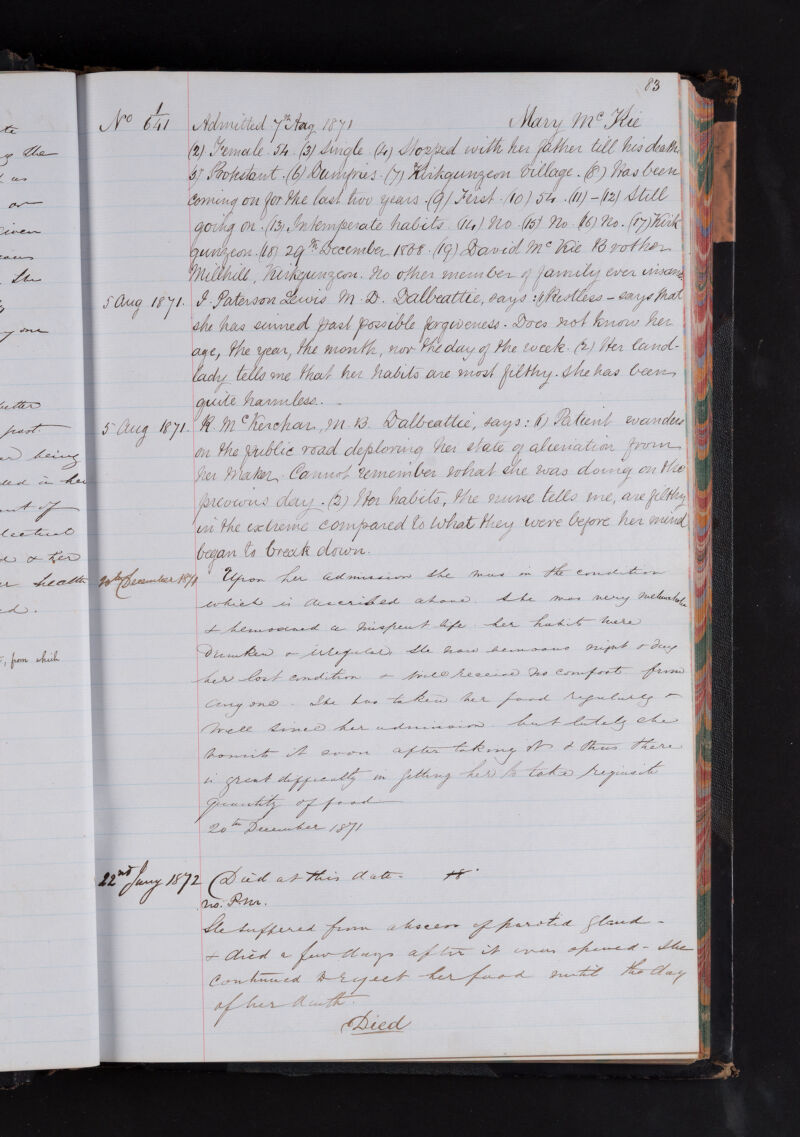 te
g the
t as
given
the
my one
latter
past
being
ded in her
ent of
d & her
health
ed.
, from which
83
No 1/641 Admitted 7th Aug 1871 Mary McKie
(2) Female. 54. (3) Single (4) Stopped with her father till his death.
5) Protestant. (6) Dumfries. (7) Kirkgunzeon Village. (8) Has been
coming on for the last two years. (9) First. (10) 54. (11) - (12) Still
going on. (13) Intemperate habits (14) No. (15) No (16) No. (17) Kirk
gunzeon. (18) 29th December 1868. (19) David McKie Brother
Millhill, Kirkgunzeon. No other member of family ever insane
5 Aug 1871. J. Paterson Lewis M.D. Dalbeattie, says: 1) Restless - says that
she has sinned past possible forgiveness. Does not know her
age, the year, the month, nor the day of the week. (2) Her land-
lady tells me that her habits are most filthy. She has been
quite harmless.
5 Aug 1871. R. McKerchar, M.B. Dalbeattie, says: (1) Patient wanders
on the public road deploring her state of alienation from
her Maker. Cannot remember what she was doing on the
previous day. (2) Her habits, the nurse tells me, are filthy
in the extreme compared to what they were before her mind
began to break down.
20th December 1871 Upon her admission she was in the condition
which is described above. She was very melancholic
& bemoaned a misspent life. her habits were
drunken & irregular. She now bemoans night & day
her lost condition & will receive no comfort from
any one. She has taken her food regularly &
well since her admission but lately she
vomits it soon after taking it & thus there
is great difficulty in getting her to take requisite
quantity of food
20th December 1871
22nd Jany 1872 (Died at this date.
no. P.m.
She suffered from abscess of parotid gland -
& died a few days after it was opened - She
continued to reject her food until the day
of her death.
Died